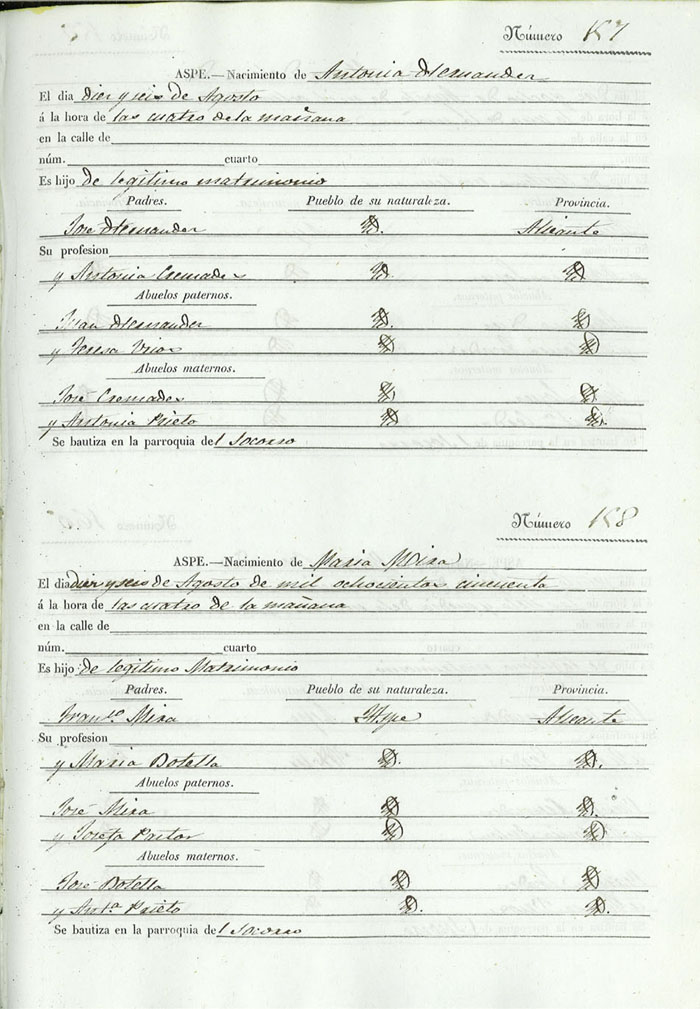 Número 157
ASPE.—Nacimiento de Antonia Hernander
El dia diez y seis de Agosto
á la hora de las cuatro de la mañana
en la calle de
núm. cuarto
Es hijo de legitimo matrimonio
Padres. Pueblo de su naturaleza. Provincia.
José Hernander Alicante
Su profesion
y Antonia Cremades
Abuelos paternos.
Juan Hernander
y Teresa
Abuelos maternos.
José Cremades
y Antonia Prieto
Se bautiza en la parroquia del Socorro
Número 158
ASPE.—Nacimiento de Maria Mira
El dia diez y seis de Agosto de mil ochocientos cincuenta
á la hora de las cuatro de la mañana
en la calle de
núm. cuarto
Es hijo de legitimo Matrimonio
Padres. Pueblo de su naturaleza. Provincia.
Franco Mira Aspe Alicante
Su profesion
y Maria Botella
Abuelos paternos.
José Mira
y Josefa Pastor
Abuelos maternos.
José Botella
y Anta Prieto
Se bautiza en la parroquia del Socorro